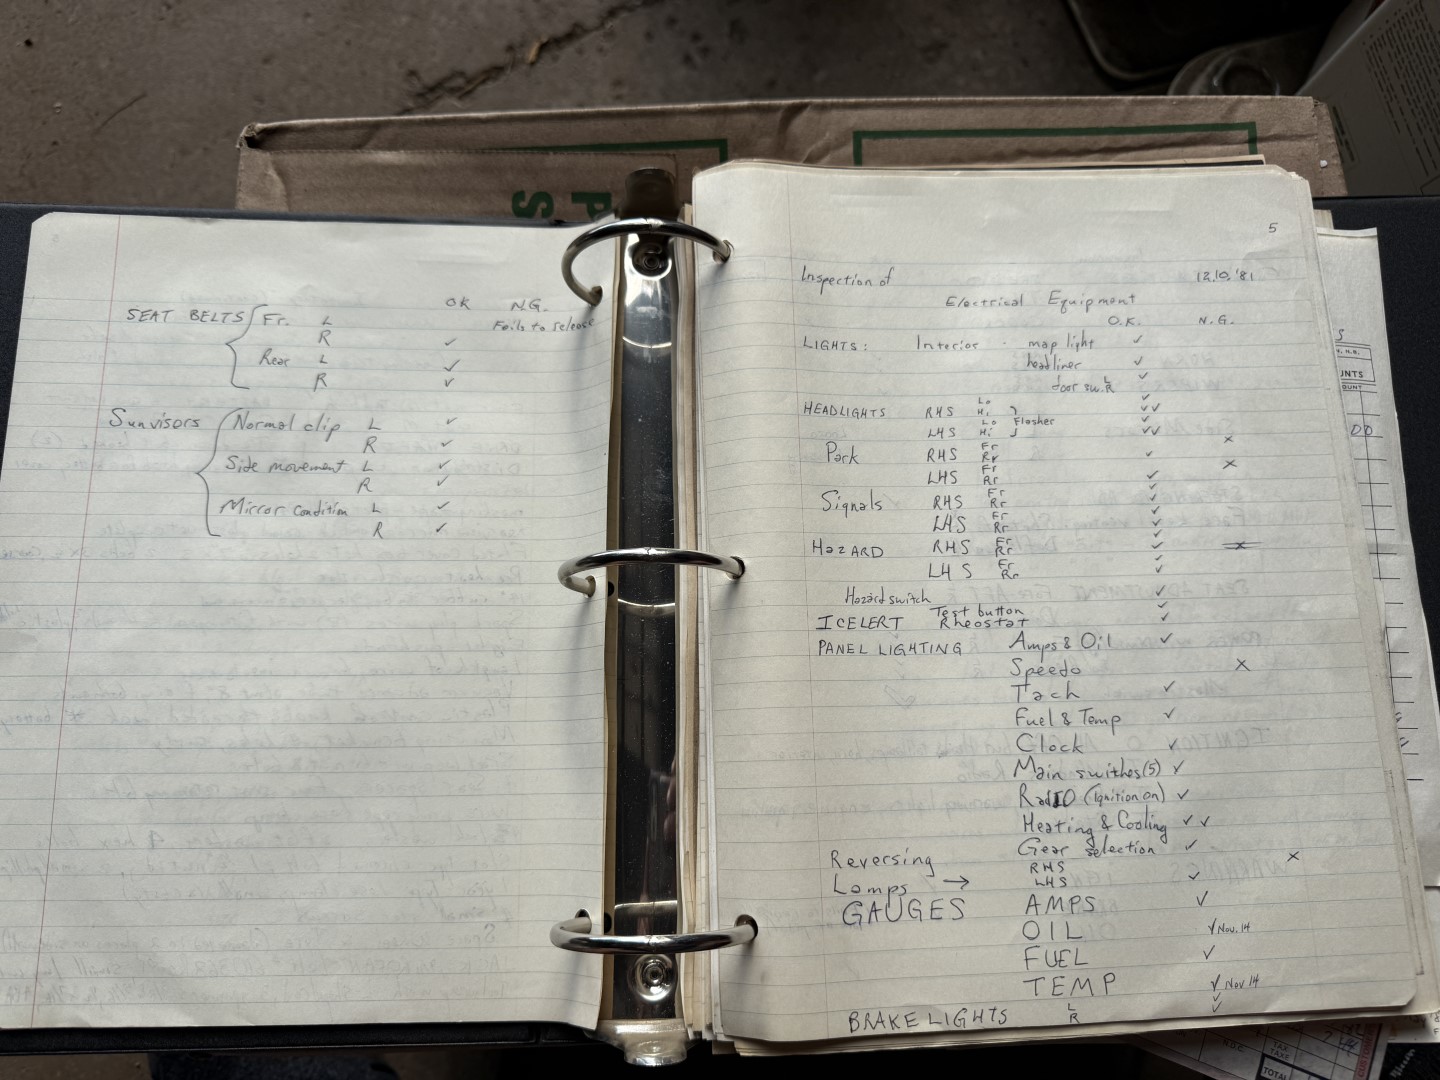 SEAT BELTS Fr. L OK N.G. Fails to release
R ✓
Rear L ✓
R ✓
Sunvisors Normal clip L ✓
R ✓
Side movement L ✓
R ✓
Mirror Condition L ✓
R ✓
5
Inspection of 12.10.'81
Electrical Equipment
O.K. N.G.
LIGHTS: Interior - map light ✓
headliner ✓
door sw. L ✓
R ✓
HEADLIGHTS RHS Lo
Hi ✓✓
Flasher
LHS Lo
Hi ✓✓
Park RHS Fr x
Rr ✓
LHS Fr x
Rr ✓
Signals RHS Fr ✓
Rr ✓
LHS Fr ✓
Rr ✓
HAZARD RHS Fr ✓
Rr ✓ x
LHS Fr ✓
Rr ✓
Hazard switch ✓
ICELERT Test button ✓
Rheostat ✓
PANEL LIGHTING Amps & Oil ✓
Speedo x
Tach ✓
Fuel & Temp ✓
Clock ✓
Main swithes (5) ✓
RadIO (Ignition on) ✓
Heating & Cooling ✓✓
Gear selection ✓
Reversing RHS x
Lamps → LHS ✓
GAUGES AMPS ✓
OIL ✓ Nov. 14
FUEL ✓
TEMP ✓ Nov 14
BRAKE LIGHTS L ✓
R ✓
P
S
TOTAL